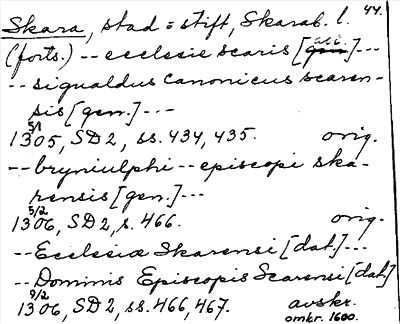 44.
Skara, stad o stift, Skarab. l.
(forts.) -- ecclesie scaris [gen. acc.]---
-- sigualdus canonicus scaren-
sis [gen.] ---
5/1
1305, SD2, ss. 434, 435. orig.
-- bryniulphi -- episcopi ska-
rensis [gen.] ---
5/2
1306, SD2, s. 466. orig.
-- Ecclesiæ Skarensi [dat.] ---
-- Dominis Episcopis Scarensi [dat.]
9/2
1306, SD2, ss. 466, 467. avskr.
omkr. 1600.